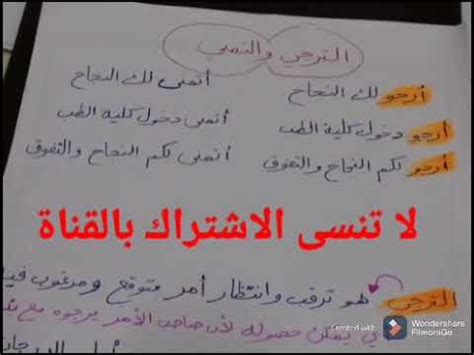 الترجي والتمني
أرجو لك النجاح
أتمنى لك النجاح
أرجو دخول كلية الطب
أتمنى دخول كلية الطب
أرجو لكم النجاح والتفوق
أتمنى لكم النجاح والتفوق
لا تنسى الاشتراك بالقناة
الترجي هو ترقب وانتظار أمر متوقع ومرغوب فيه
حصوله لأن صاحب الأمر يرجوه مع
Created with
Wondershare
FilmoraGo